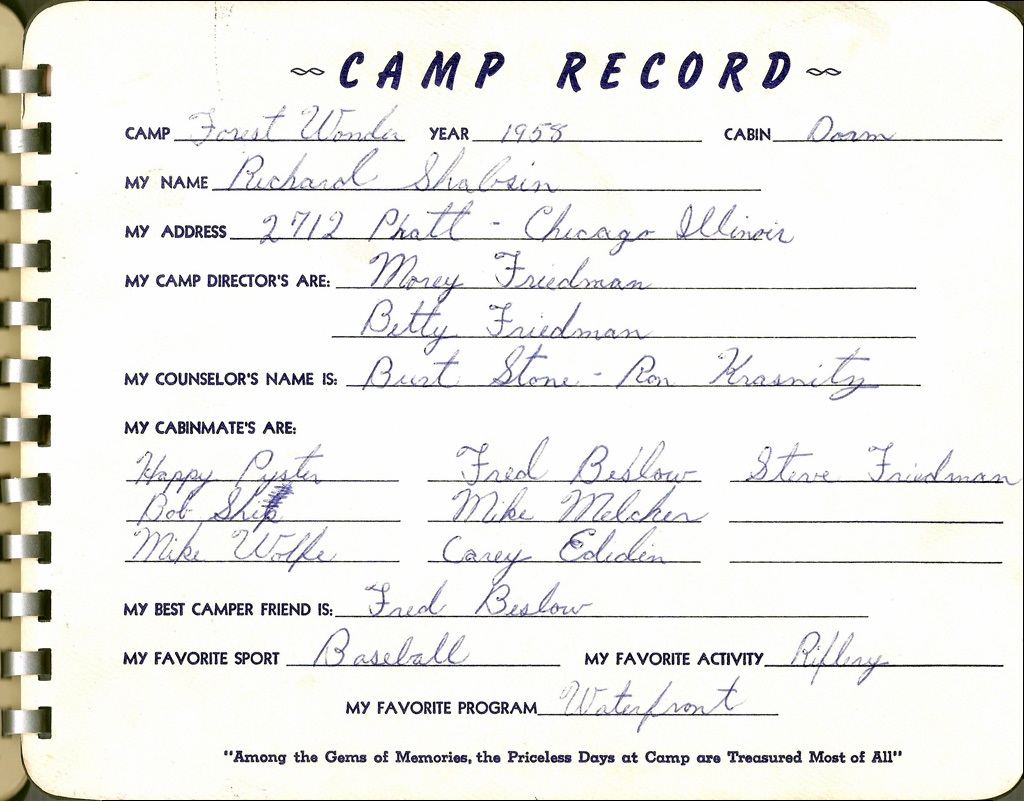 CAMP RECORD
CAMP Forest Wonder YEAR 1958 CABIN Dorm
MY NAME Richard Shabsin
MY ADDRESS 2712 Pratt - Chicago Illinois
MY CAMP DIRECTOR'S ARE: Morey Friedman
Betty Friedman
MY COUNSELOR'S NAME IS: Burt Stone - Ron Krasnitz
MY CABINMATE'S ARE:
Happy Pyster Fred Beslow Steve Friedman
Bob Mike Melcher
Mike Wolfe Carey Ededin
MY BEST CAMPER FRIEND IS: Fred Beslow
MY FAVORITE SPORT Baseball MY FAVORITE ACTIVITY Riflery
MY FAVORITE PROGRAM Waterfront
"Among the Gems of Memories, the Priceless Days at Camp are Treasured Most of All"